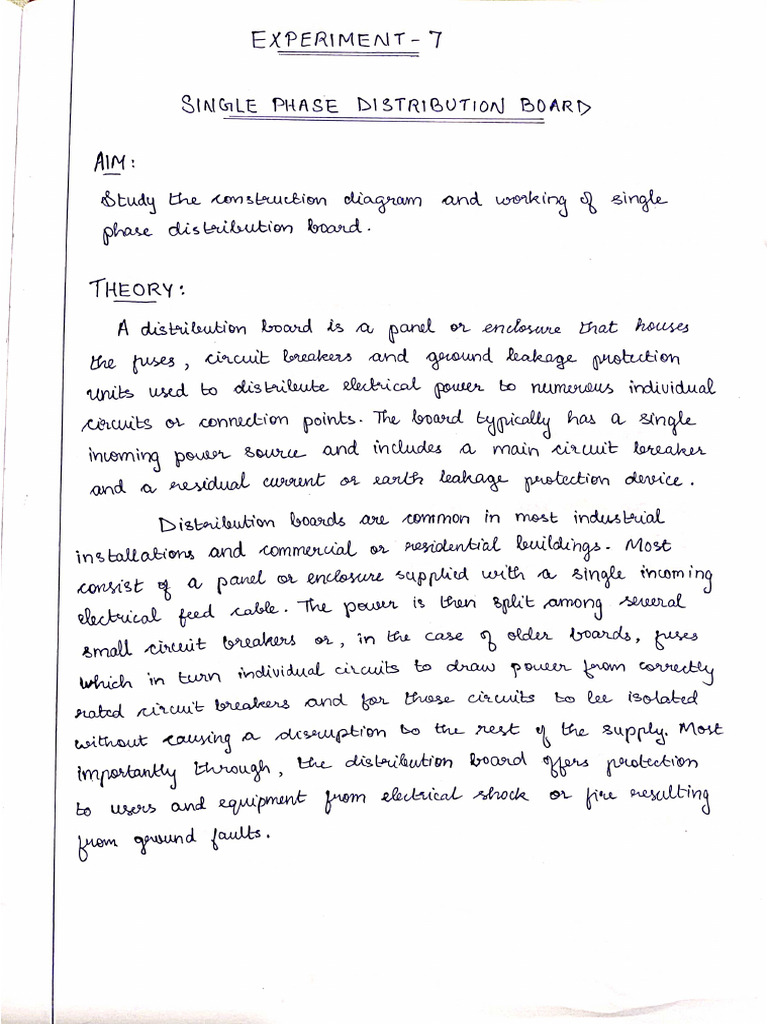 EXPERIMENT - 7
SINGLE PHASE DISTRIBUTION BOARD
AIM:
Study the construction diagram and working of single
phase distribution board.
THEORY:
A distribution board is a panel or enclosure that houses
the fuses, circuit breakers and ground leakage protection
units used to distribute electrical power to numerous individual
circuits or connection points. The board typically has a single
incoming power source and includes a main circuit breaker
and a residual current or earth leakage protection device.
Distribution boards are common in most industrial
installations and commercial or residential buildings. Most
consist of a panel or enclosure supplied with a single incoming
electrical feed cable. The power is then split among several
small circuit breakers or, in the case of older boards, fuses
which in turn individual circuits to draw power from correctly
rated circuit breakers and for those circuits to be isolated
without causing a disruption to the rest of the supply. Most
importantly through, the distribution board offers protection
to users and equipment from electrical shock or fire resulting
from ground faults.